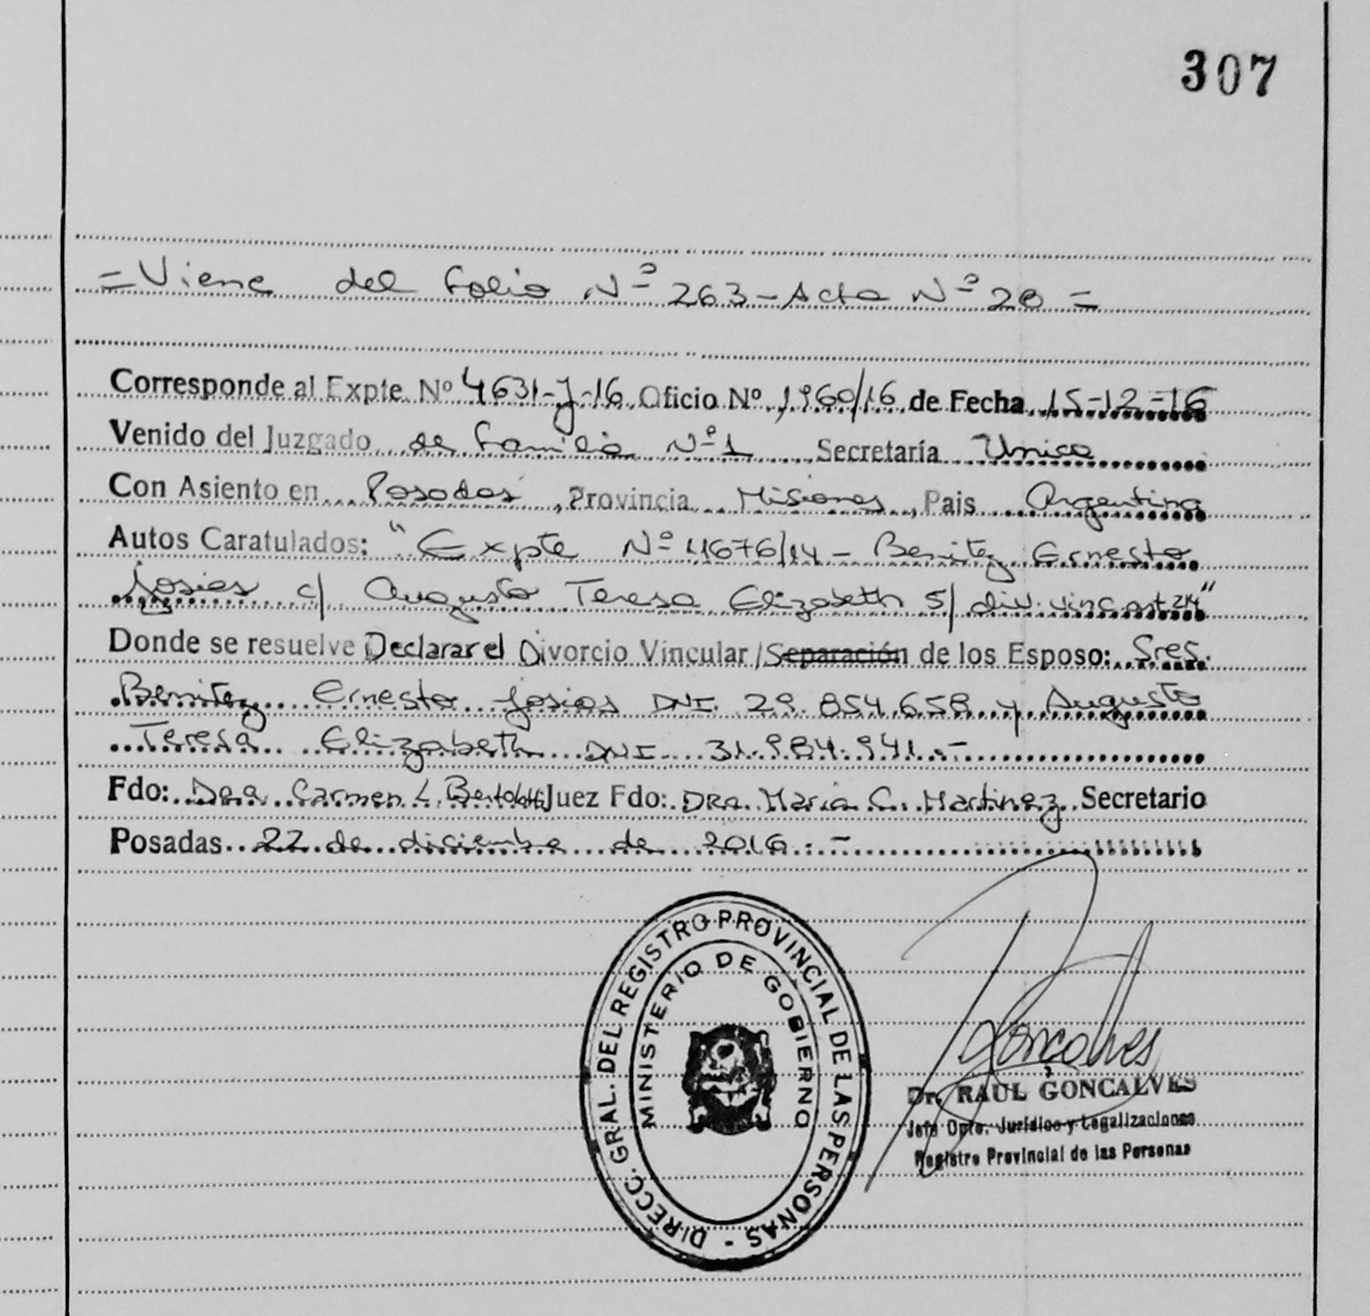 307
= Viene del folio Nº 263 - Acta Nº 20 =
Corresponde al Expte. Nº 4631-J-16 Oficio Nº 1960/16 de Fecha 15-12-16
Venido del Juzgado de Familia Nº 1 Secretaría Unica
Con Asiento en Posadas, Provincia Misiones, Pais Argentina
Autos Caratulados: "Expte Nº 4676/14 - Benitez Ernesto
Josias c/ Augusto Teresa Elizabeth s/ div. vinc. art 214"
Donde se resuelve Declarar el Divorcio Vincular/Separación de los Esposo: Sres.
Benitez Ernesto Josias DNI. 29.854.658 y Augusto
Teresa Elizabeth DNI 31.984.941.-
Fdo: Dra. Carmen L. Juez Fdo: DRa. Maria C. Martinez Secretario
Posadas 22 de diciembre de 2016.-
DIRECC. GRAL. DEL REGISTRO PROVINCIAL DE LAS PERSONAS -
MINISTERIO DE GOBIERNO
Gonçalves
Dr. RAUL GONCALVES
Jefe Dpto. Jurídico y Legalizaciones
Registro Provincial de las Personas